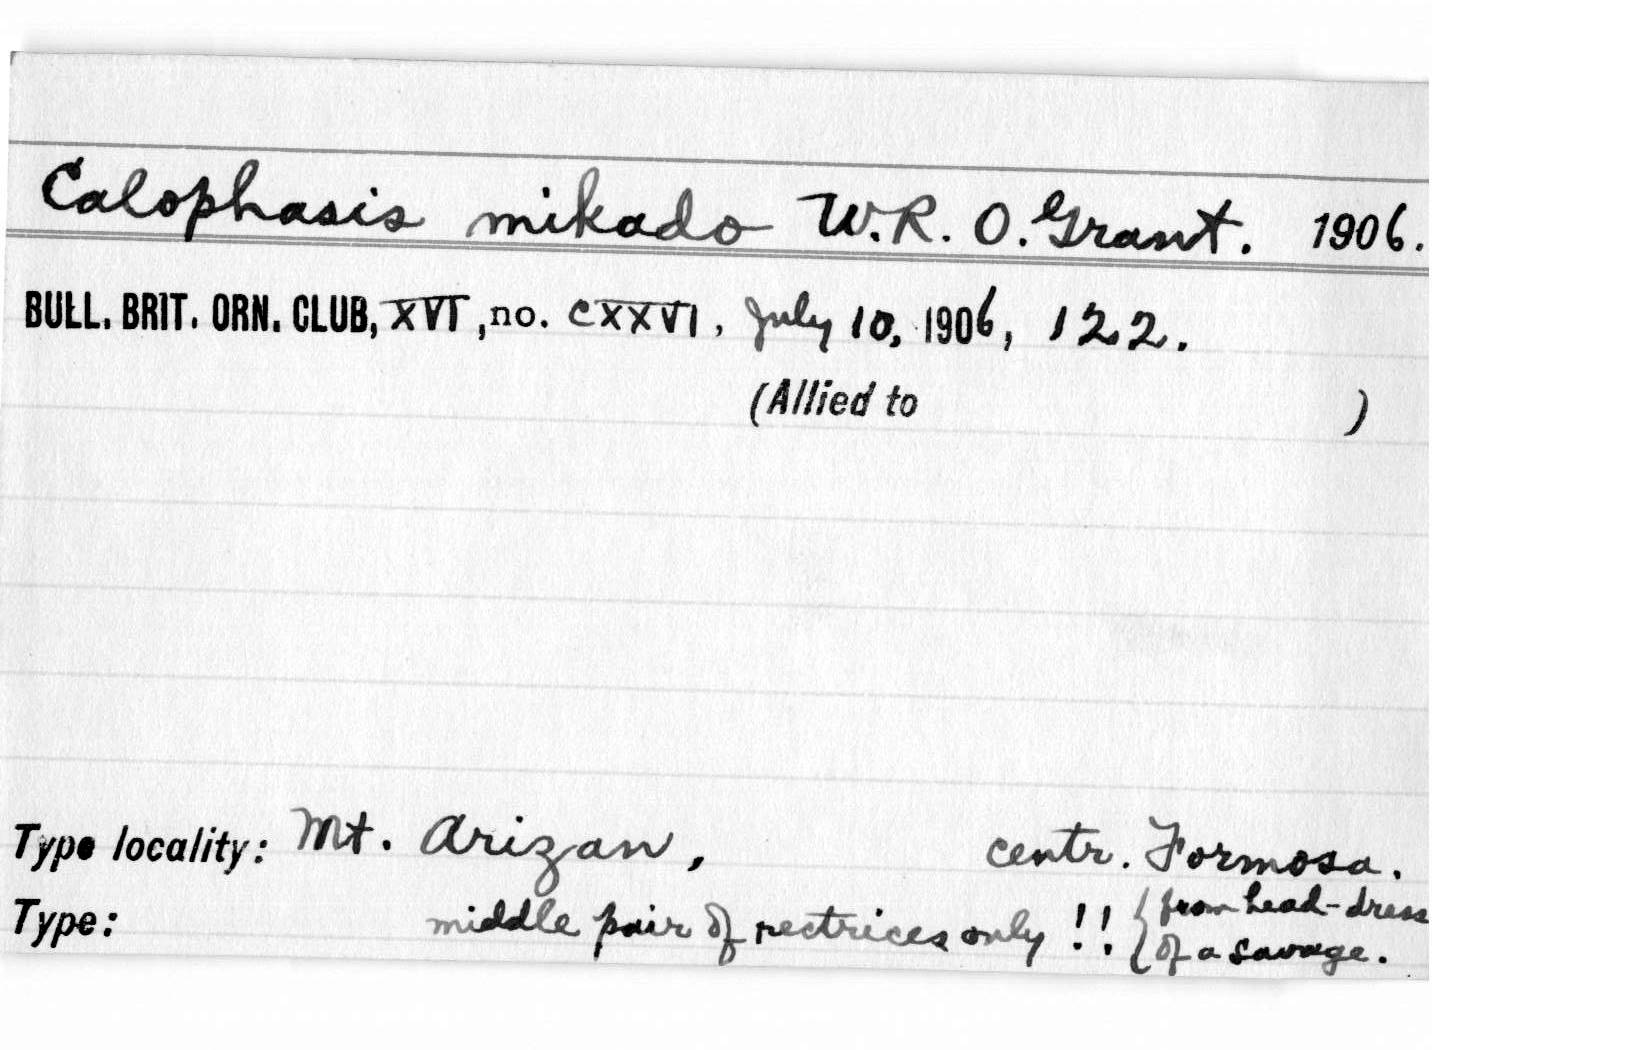 Calophasis mikado W. R. O. Grant. 1906.
BULL. BRIT. ORN. CLUB, XVI, no. CXXVI, July 10, 1906, 122.
(Allied to )
Type locality: Mt. Arizan, centr. Formosa.
Type: middle pair of rectrices only !! { from head-dress
of a savage.